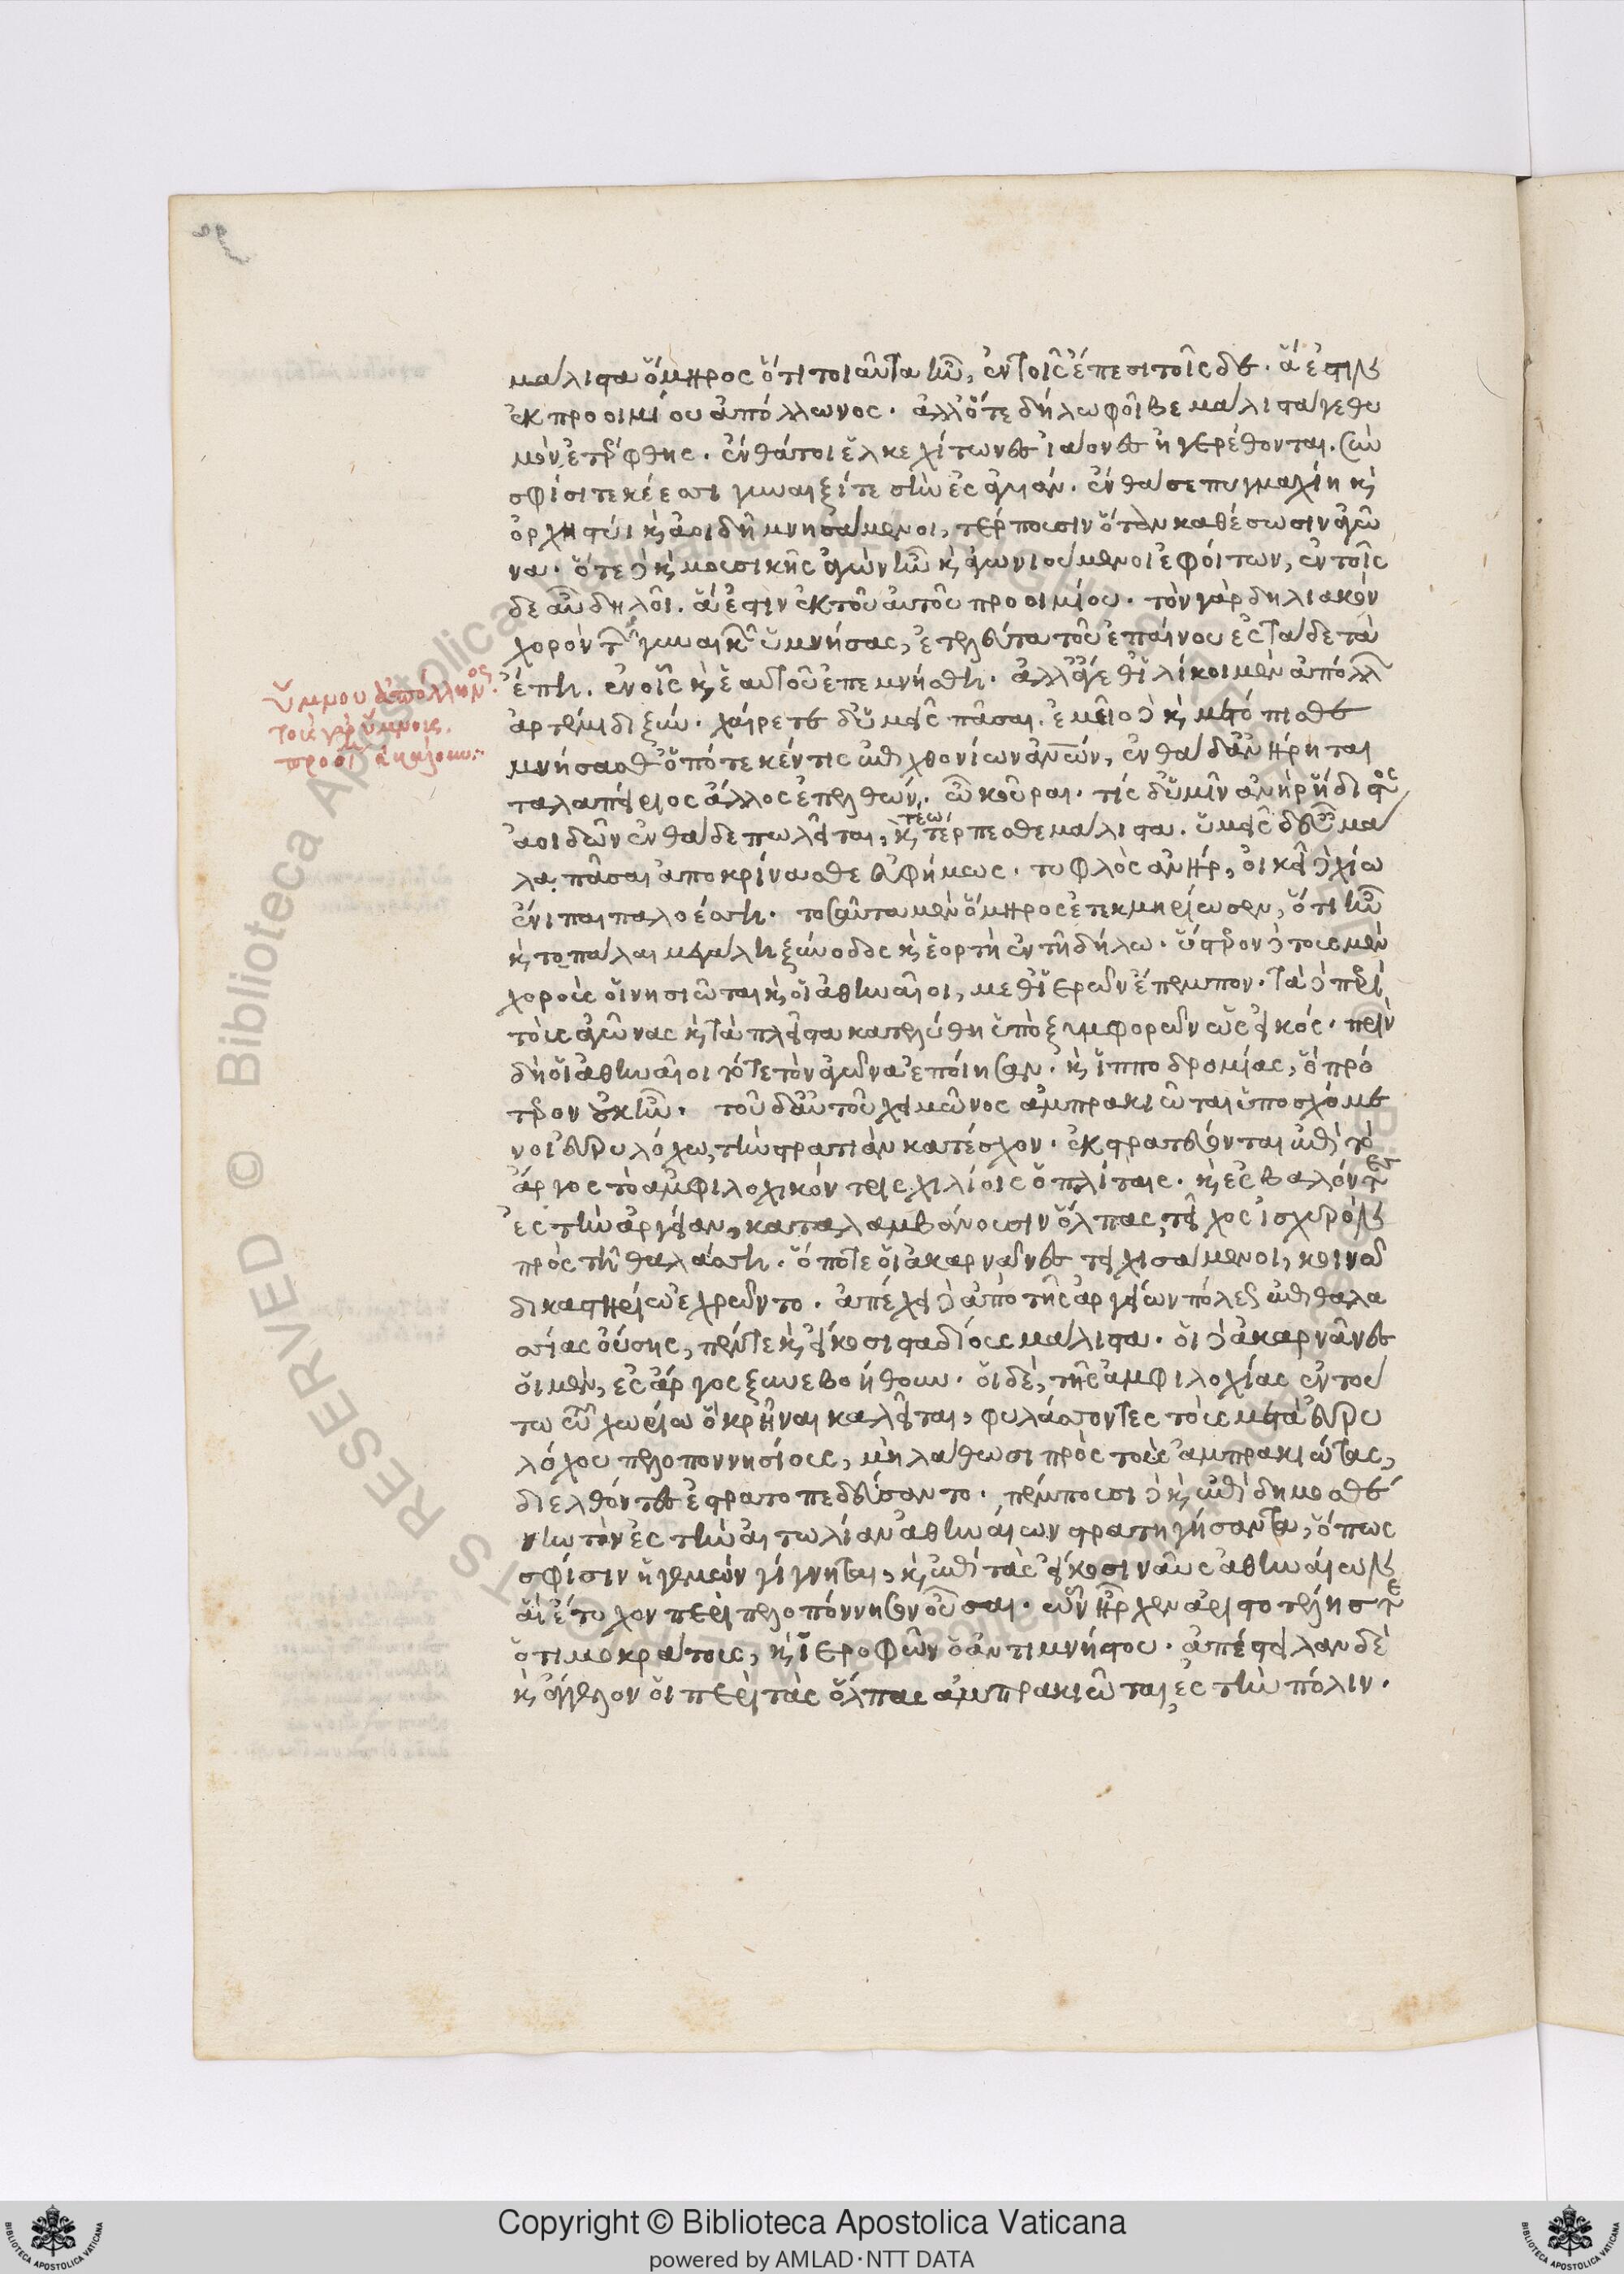 μάλιστα ὅμηρος ὅτι τοιαῦτα ἦν, ἐν τοῖς ἔπεσι τοῖς δε. ἅ ἐστιν
ἐκ προοιμίου ἀπόλλωνος. ἀλλ' ὅτε δήλω φοῖβε μάλιστά γε θυ
μὸν ἐτέρφθης. ἔνθά τοι ἑλκεχίτωνες ἰάονες ἠγερέθονται. σὺν
σφίσι τεκέεσσι γυναιξί τε σὴν ἐς ἀγυιάν. ἔνθα σε πυγμαχίη καὶ
ὀρχηστύι καὶ ἀοιδῇ μνησάμενοι, τέρπουσιν ὅταν καθέσωσιν ἀγῶ
να. ὅτι δὲ καὶ μουσικῆς ἀγὼν ἦν καὶ ἀγωνιούμενοι ἐφοίτων, ἐν τοῖς
δε αὖ δηλοῖ. ἅ ἐστιν ἐκ τοῦ αὐτοῦ προοιμίου. τὸν γὰρ δηλιακὸν
χορὸν τῶν γυναικῶν ὑμνήσας, ἐτελεύτα τοῦ ἐπαίνου ἐς τάδε τὰ
ἔπη. ἐν οἷς καὶ ἑαυτοῦ ἐπεμνήσθη. ἀλλ' ἄγεθ' ἱλήκοι μὲν ἀπόλλων
ἀρτέμιδι ξύν. χαίρετε δ' ὑμεῖς πᾶσαι. ἐμεῖο δὲ καὶ μετόπισθε
μνήσασθ' ὁππότε κέν τις ἐπιχθονίων ἀνθρώπων, ἐνθάδ' ἀνήρηται
ταλαπείριος ἄλλος ἐπελθών. ὦ κοῦραι. τίς δ' ὔμμιν ἀνὴρ ἥδιστος
ἀοιδῶν ἐνθάδε πωλεῖται, καὶ τέω τέρπεσθε μάλιστα. ὑμεῖς δ' εὖ μά
λα πᾶσαι ἀποκρίνασθε εὐφήμως. τυφλὸς ἀνήρ, οἰκεῖ δὲ χίω
ἔνι παιπαλοέσση. τοσαῦτα μὲν ὅμηρος ἐτεκμηρίωσεν, ὅτι ἦν
καὶ τοπάλαι μεγάλη ξύνοδος καὶ ἑορτὴ ἐν τῇ δήλω. ὕστερον δὲ τοὺς μὲν
χοροὺς οἱ νησιῶται καὶ οἱ ἀθηναῖοι, μεθ' ἱερῶν ἔπεμπον. τὰ δὲ περὶ
τοὺς ἀγῶνας καὶ τὰ πλεῖστα κατελύθη ὑπὸ ξυμφορῶν ὡς εἰκός. πρὶν
δὴ οἱ ἀθηναῖοι τότε τὸν ἀγῶνα ἐποίησαν. καὶ ἱπποδρομίας, ὃ πρό
τερον οὐκ ἦν. τοῦ δ' αὐτοῦ χειμῶνος ἀμπρακιῶται ὑποσχόμε
νοι εὐρυλόχω, τὴν στρατιὰν κατέσχον. ἐκστρατεύονται ἐπὶ τὸ
ἄργος τὸ ἀμφιλοχικὸν τρισχιλίοις ὁπλίταις. καὶ ἐσβαλόντες
ἐς τὴν ἀργείαν, καταλαμβάνουσιν ὄλπας, τεῖχος ἰσχυρὸν
πρὸς τῇ θαλάσση. ὅ ποτε οἱ ἀκαρνᾶνες τειχισάμενοι, κοινῶ
δικαστηρίω ἐχρῶντο. ἀπέχει δὲ ἀπὸ τῆς ἀργείων πόλεως ἐπιθαλα
σσίας οὔσης, πέντε καὶ εἴκοσι σταδίους μάλιστα. οἱ δὲ ἀκαρνᾶνες
οἱ μὲν, ἐς ἄργος ξυνεβοήθουν. οἱ δὲ, τῆς ἀμφιλοχίας ἐν τού
τω τῶ χωρίω ὃ κρῆναι καλεῖται, φυλάσσοντες τοὺς μετὰ εὐρυ
λόχου πελοποννησίους, μὴ λάθωσι πρὸς τοὺς ἀμπρακιώτας,
διελθόντες ἐστρατοπεδεύσαντο. πέμπουσι δὲ καὶ ἐπὶ δημοσθέ
νην τὸν ἐς τὴν αἰτωλίαν ἀθηναίων στρατηγήσαντα, ὅπως
σφίσιν ἡγεμὼν γίγνηται, καὶ ἐπὶ τὰς εἴκοσι ναῦς ἀθηναίων
αἳ ἔτυχον περὶ πελοπόννησον οὖσαι. ὧν ἦρχεν ἀριστοτέλης τε
ὁ τιμοκράτους, καὶ ἱεροφῶν ὁ ἀντιμνήστου. ἀπέστειλαν δὲ
καὶ ἄγγελον οἱ περὶ τὰς ὄλπας ἀμπρακιῶται ἐς τὴν πόλιν.
ὕμνου ἀπόλλωνος.
τοὺς γὰρ ὕμνους.
προοίμια ἐκάλουν: